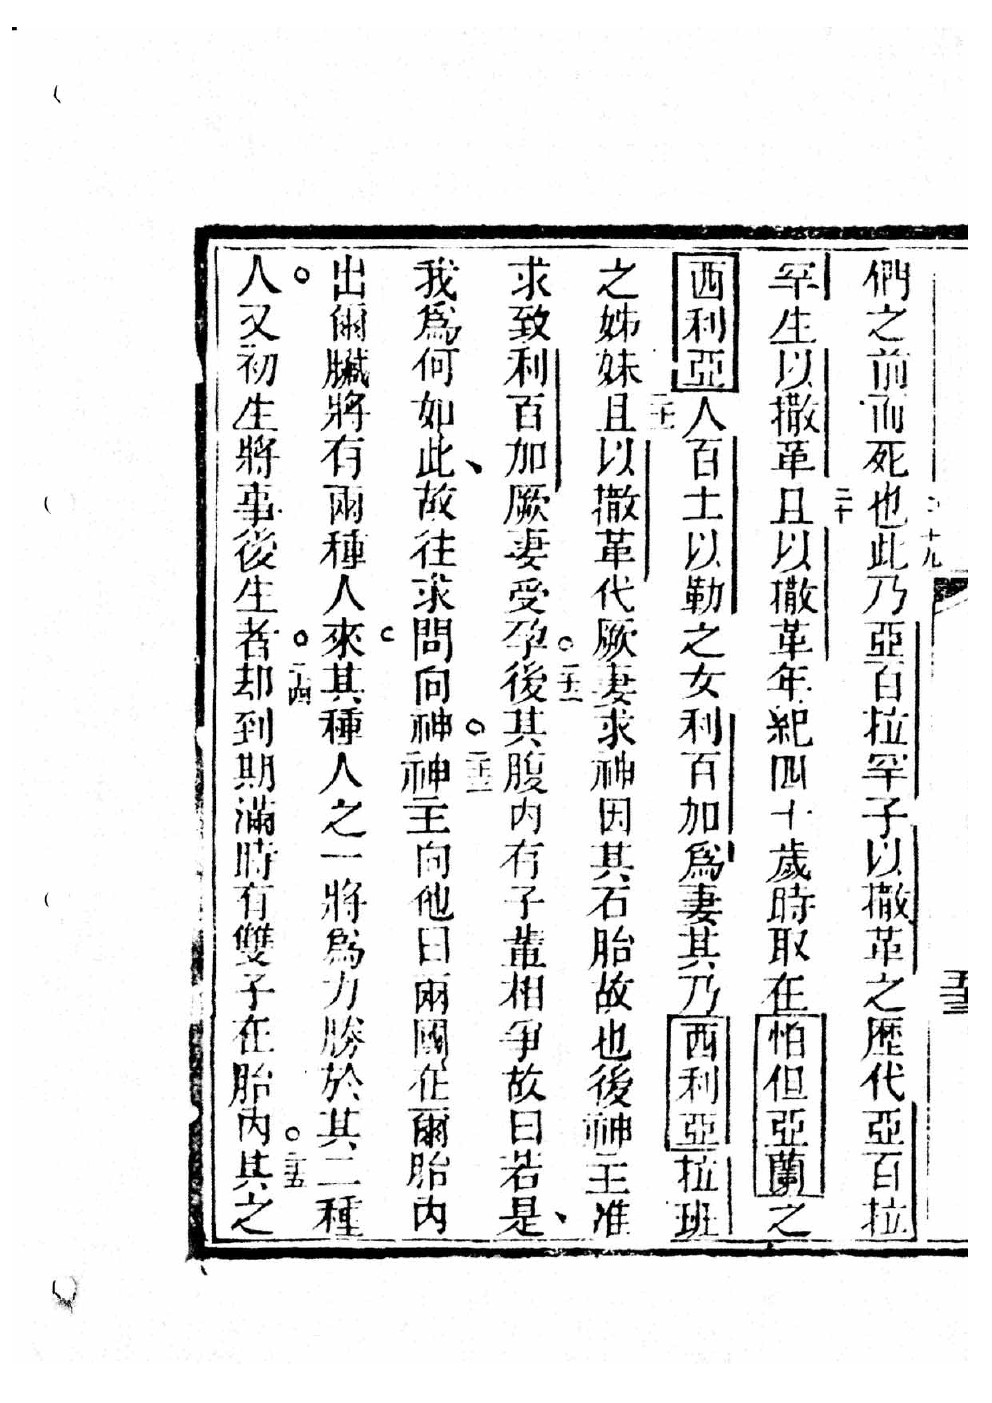 們之前而死也此乃亞百拉罕子以撒革之歷代亞百拉
十九
罕生以撒革且以撒革年紀四十歲時取在怕但亞蘭之
二十
西利亞人百土以勒之女利百加爲妻其乃西利亞拉班
之姊妹且以撒革代厥妻求神因其石胎故也後神主准
二十一
求致利百加厥妻受孕後其腹內有子輩相爭故曰若是
二十二
我爲何如此故往求問向神神主向他曰兩國在爾胎內
二十三
出爾臟將有兩種人來其種人之一將爲力勝於其二種
人又初生將事後生者却到期滿時有雙子在胎內其之
二十四
二十五